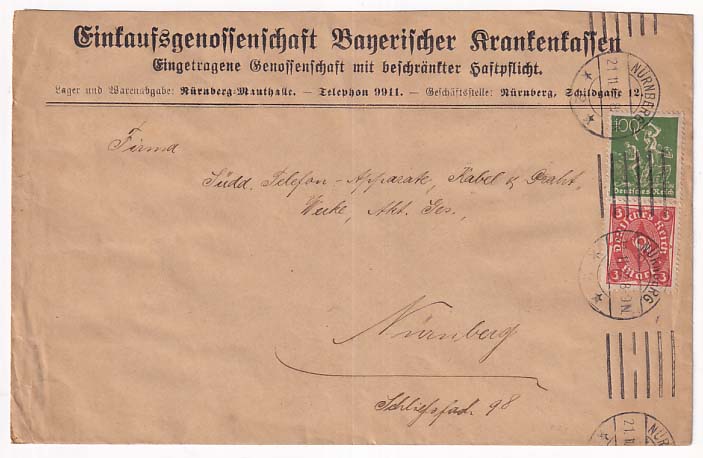 Einkaufsgenossenschaft Bayerischer Krankenkassen
Eingetragene Genossenschaft mit beschränkter Haftpflicht.
Lager und Warenabgabe: Nürnberg-Mauthalle. — Telephon 9911. — Geschäftsstelle: Nürnberg, Schildgasse 12.
Firma
Südd. Telefon-Apparate, Kabel & Draht,
Werke, Akt. Ges.,
Nürnberg
Schliessfach 98
NÜRNBERG
100
Deutsches Reich
3 3
Deutsches Reich
3 Mark 3
NÜRNBERG
NÜR